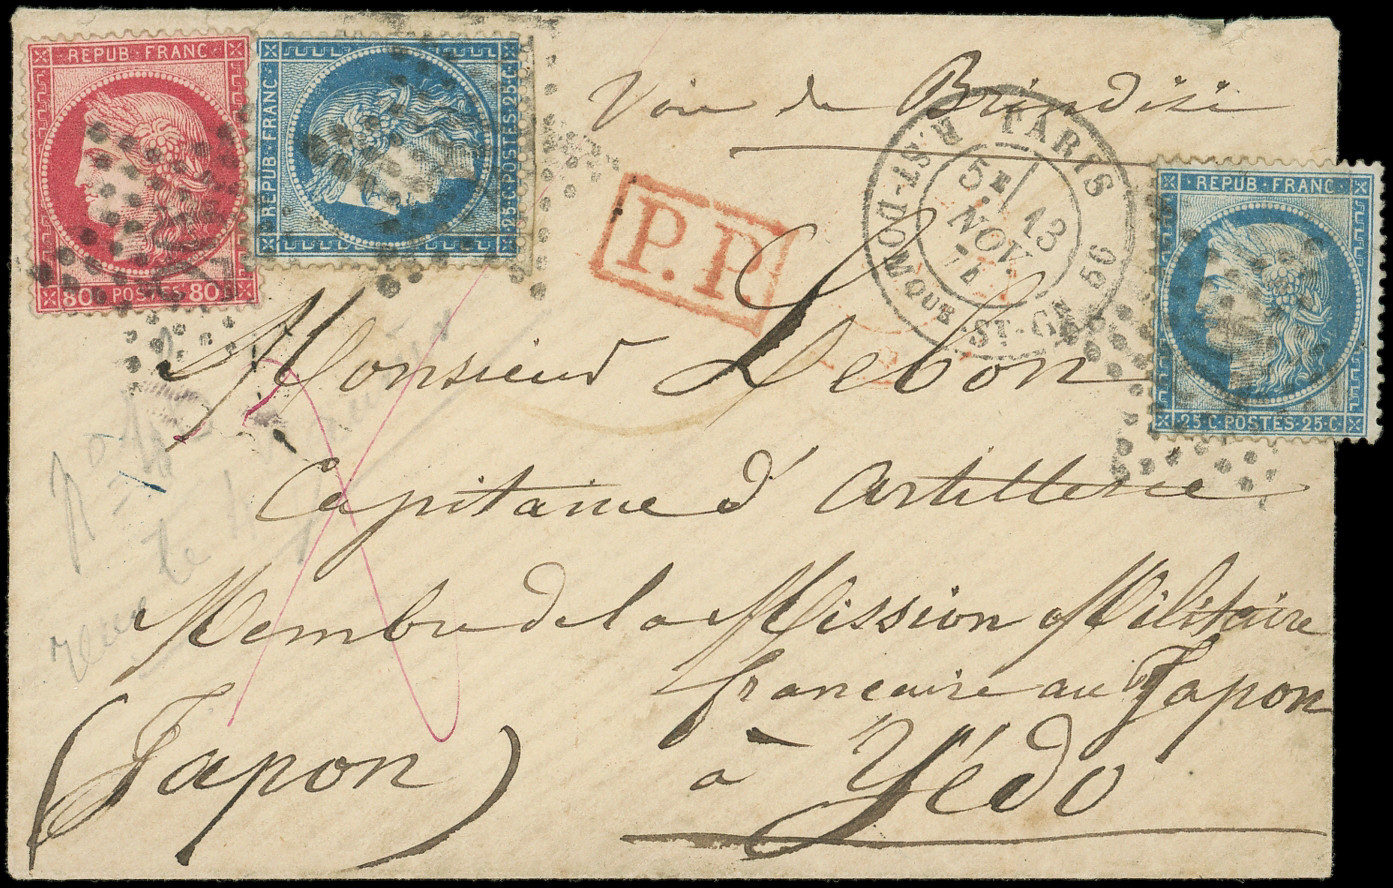 REPUB·FRANC
80c POSTES 80c
REPUB·FRANC
25·C·POSTES·25·C
Voie de Brindisi
PARIS
R. ST-DOMINIQUE ST-GN 56
5E
13
NOV.
74
P.P.
REPUB·FRANC
25·C·POSTES·25·C
Monsieur Lebon
Capitaine d'Artillerie
Membre de la Mission Militaire
française au Japon
à Yédo
(Japon)